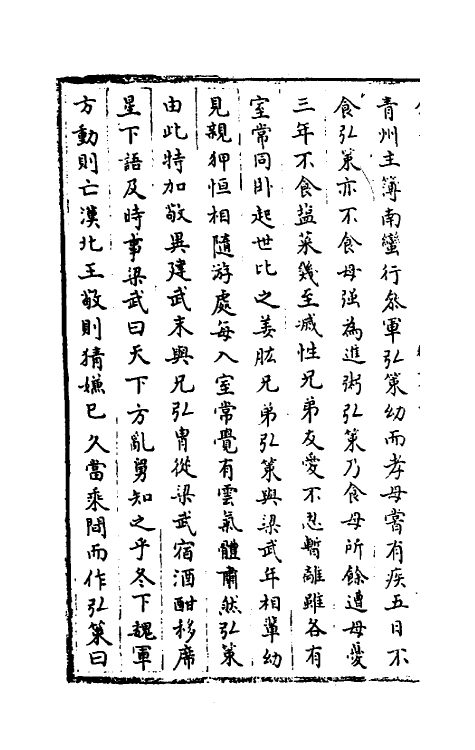 青州主簿南蠻行叅軍弘策幼而孝母嘗有疾五日不
食弘策亦不食母强為進粥弘策乃食母所餘遭母憂
三年不食盐菜幾至滅性兄弟友愛不忍暫離雖各有
室常同卧起世比之姜肱兄弟弘策與梁武年相輩幼
見親狎恒相隨游處每入室常覺有雲氣體肅然弘策
由此特加敬異建武末與兄弘胄從梁武宿酒酣移席
星下語及時事梁武曰天下方亂舅知之乎冬下魏軍
方動則亡漢北王敬則猜嫌已久當乘間而作弘策曰